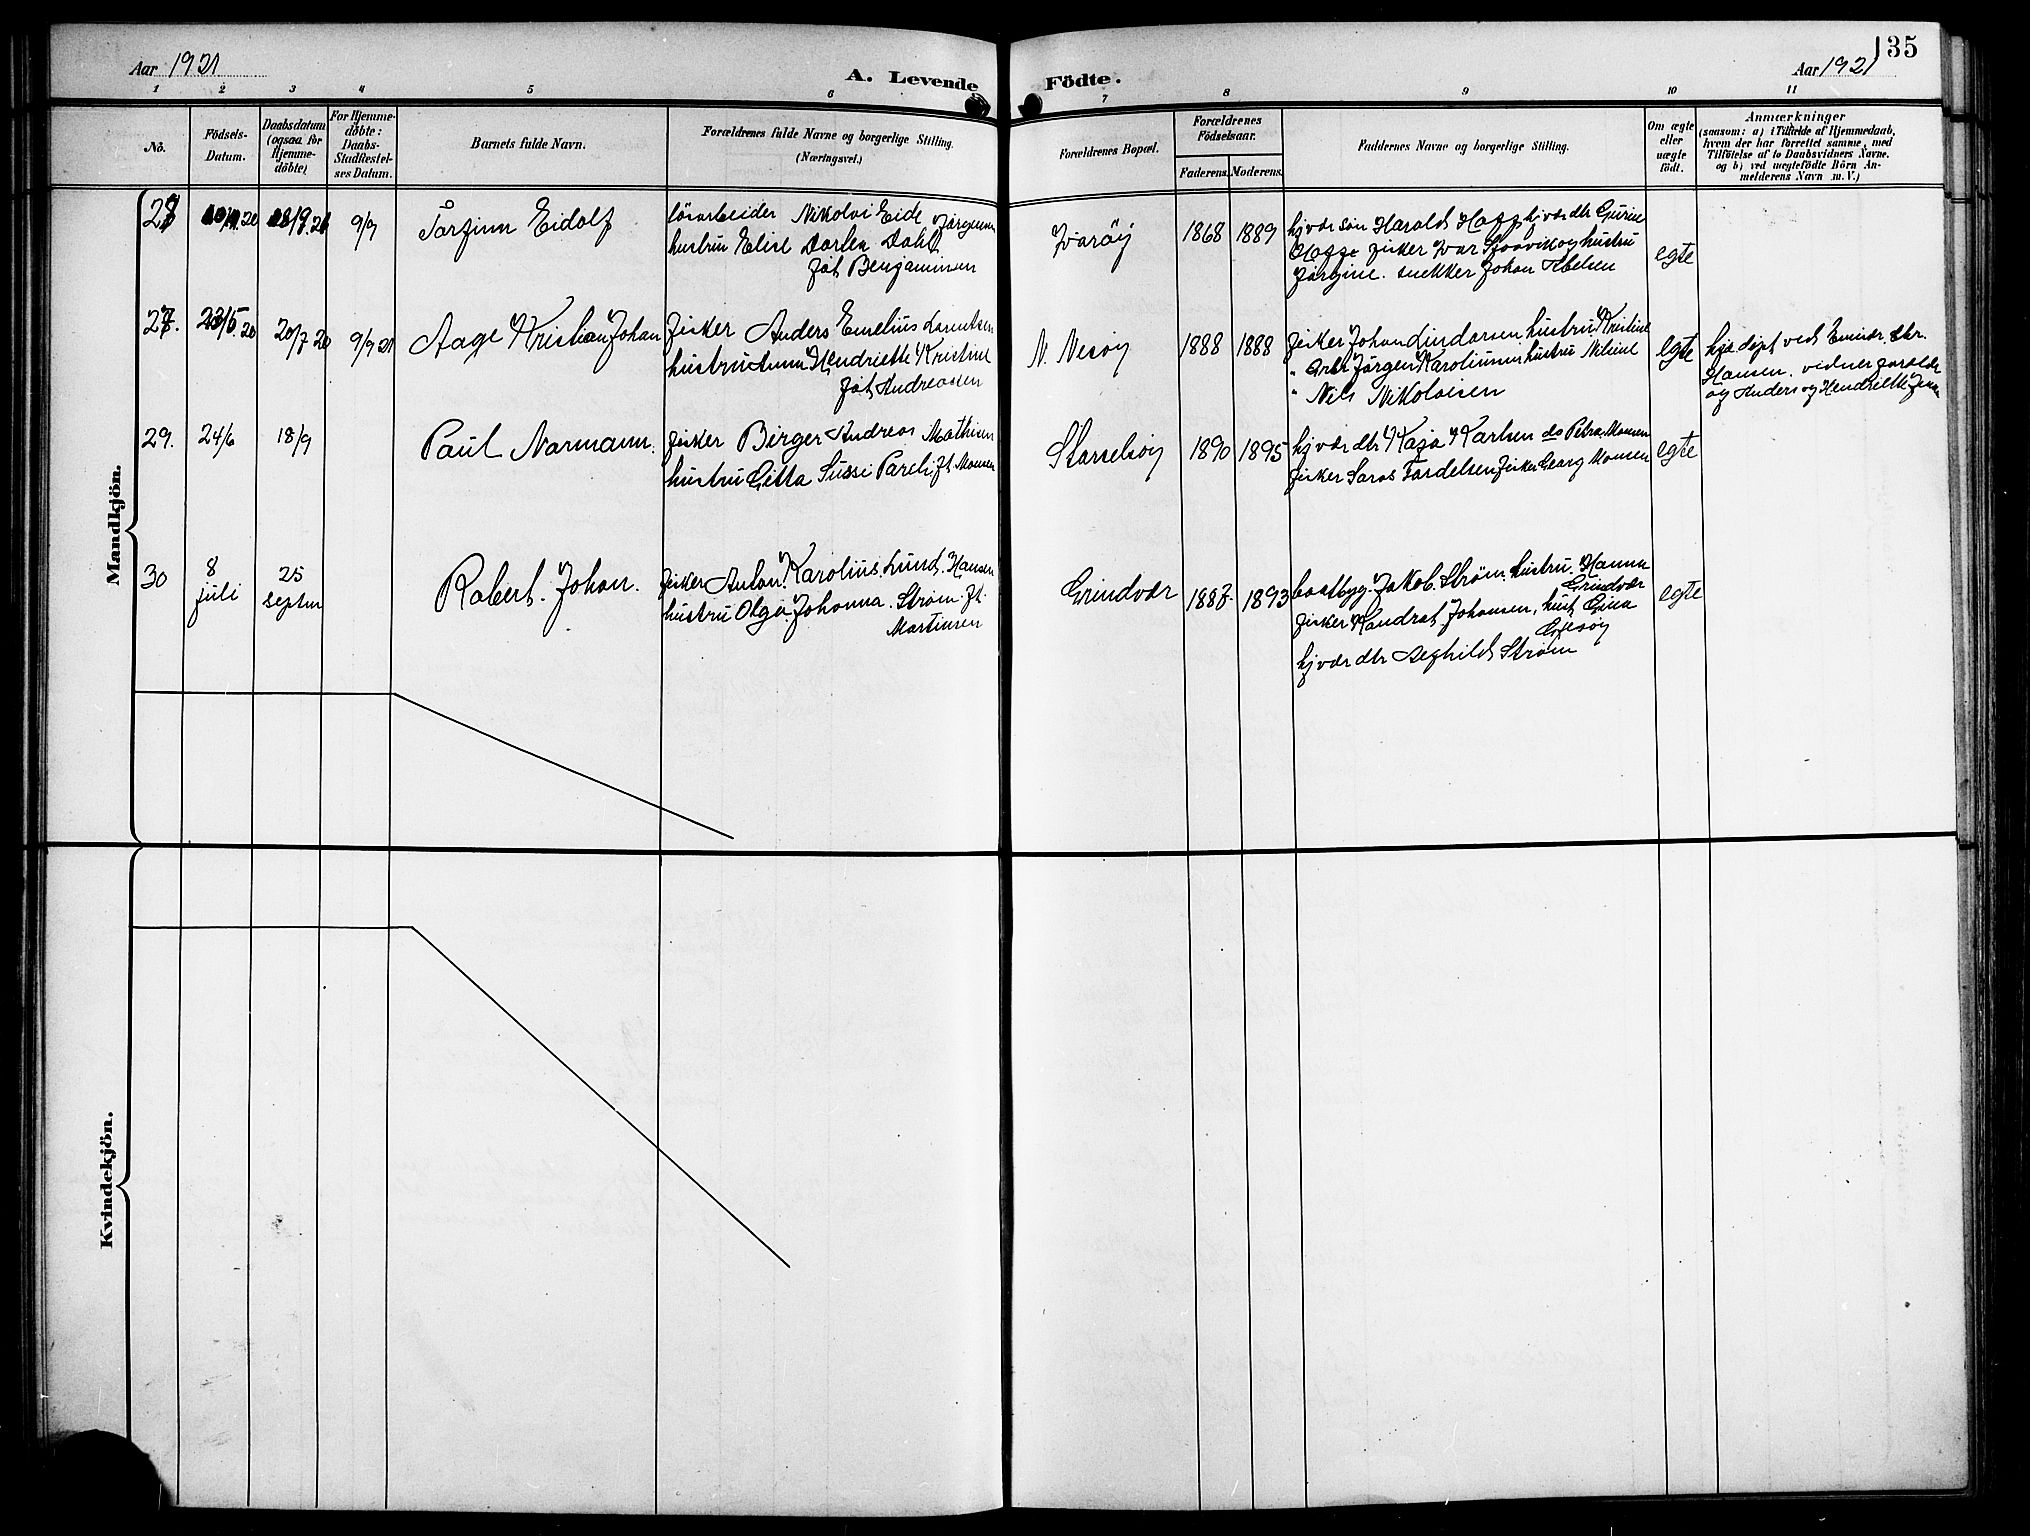 Aar 1921
A. Levende
Födte.
Aar 1921
135
1 2 3 4 5 6 7 8 9 10 11
No.
Födsels-
Datum.
Daabsdatum
(ogsaa for
Hjemme-
döbte)
For Hjemme-
döbte:
Daabs-
Stadfæstel-
ses Datum.
Barnets fulde Navn.
Forældrenes fulde Navne og borgerlige Stilling.
(Næringsvei.)
Forældrenes Bopæl.
Forældrenes
Födselsaar.
Faderens. Moderens.
Faddernes Navne og borgerlige Stilling.
Om ægte
eller
uægte
födt.
Anmærkninger
(saasom: a) i Tilfælde af Hjemmedaab,
hvem der har forrettet samme, med
Tilföielse af to Daabsvidners Navne.
og b) ved uegtefödte Börn An-
melderens Navn m. V.)
Mandkjön.
28 9/9 Torfinn Eidolf
Nikolai Eide Jörgensen
hustru Elise Dorthea Dahl
föt Benjaminsen
1868 1889
hj vær søn Harald Hagge hj vær dtr Gurine
Hagge fisker Ivar Skaavik og hustru
Jørgine. snekker Johan Abelsen
egte
27. 23/5 20 20/7 20 9/9 21 Aage Kristian Johan
fisker Anders Emelius Lorentsen
hustru Anna Hendriette Kristine
föt Andreassen
N. Nesøy 1888 1888
fisker Johan Lindorsen hustru Kristine
" Jörgen Karoliussen hustru Niline
" Nils Nikolaisen
egte
hjd. døpt ved
Hansen. vidner
og Anders og Hendrette
29. 24/6 18/9 Paul Normann.
fisker Birger Andreas Mathisen
hustru Gitta Sussi Pareli ft. Monsen
Storselsøy 1890 1895
hj vær dtr Kaja Karlsen do Petra Monsen
fisker Georg Monsen
egte
30 8
juli
25
septem
Robert. Johan.
fisker Anton. Karolius. Lund. Hansen
hustru Olga. Johanna. Strøm. ft.
Martinsen
Grindvær 1887. 1893
baatbyg. Jakob. Strøm. hustru. Hanna
Grindvær
fisker Kondrat Johansen, hust Gina
hj vær dtr Strøm
egte
Kvindekjön.